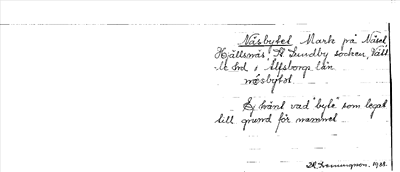 Näsbytet Mark på Näset
Hjällsnäs, St Lundby socken, Vätt
le hd i Älfsborgs län
näsbytət
Ej känt vad "byte" som legat
till grund för namnet
1938.